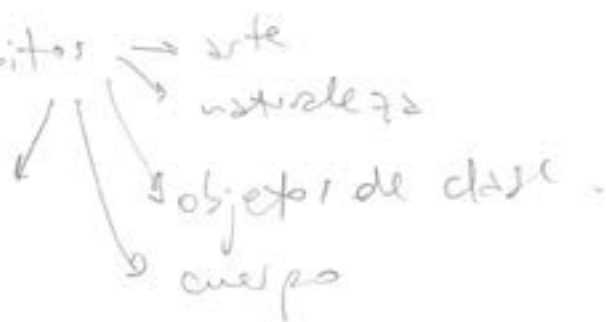 arte
naturaleza
objetos de clase.
cuerpo